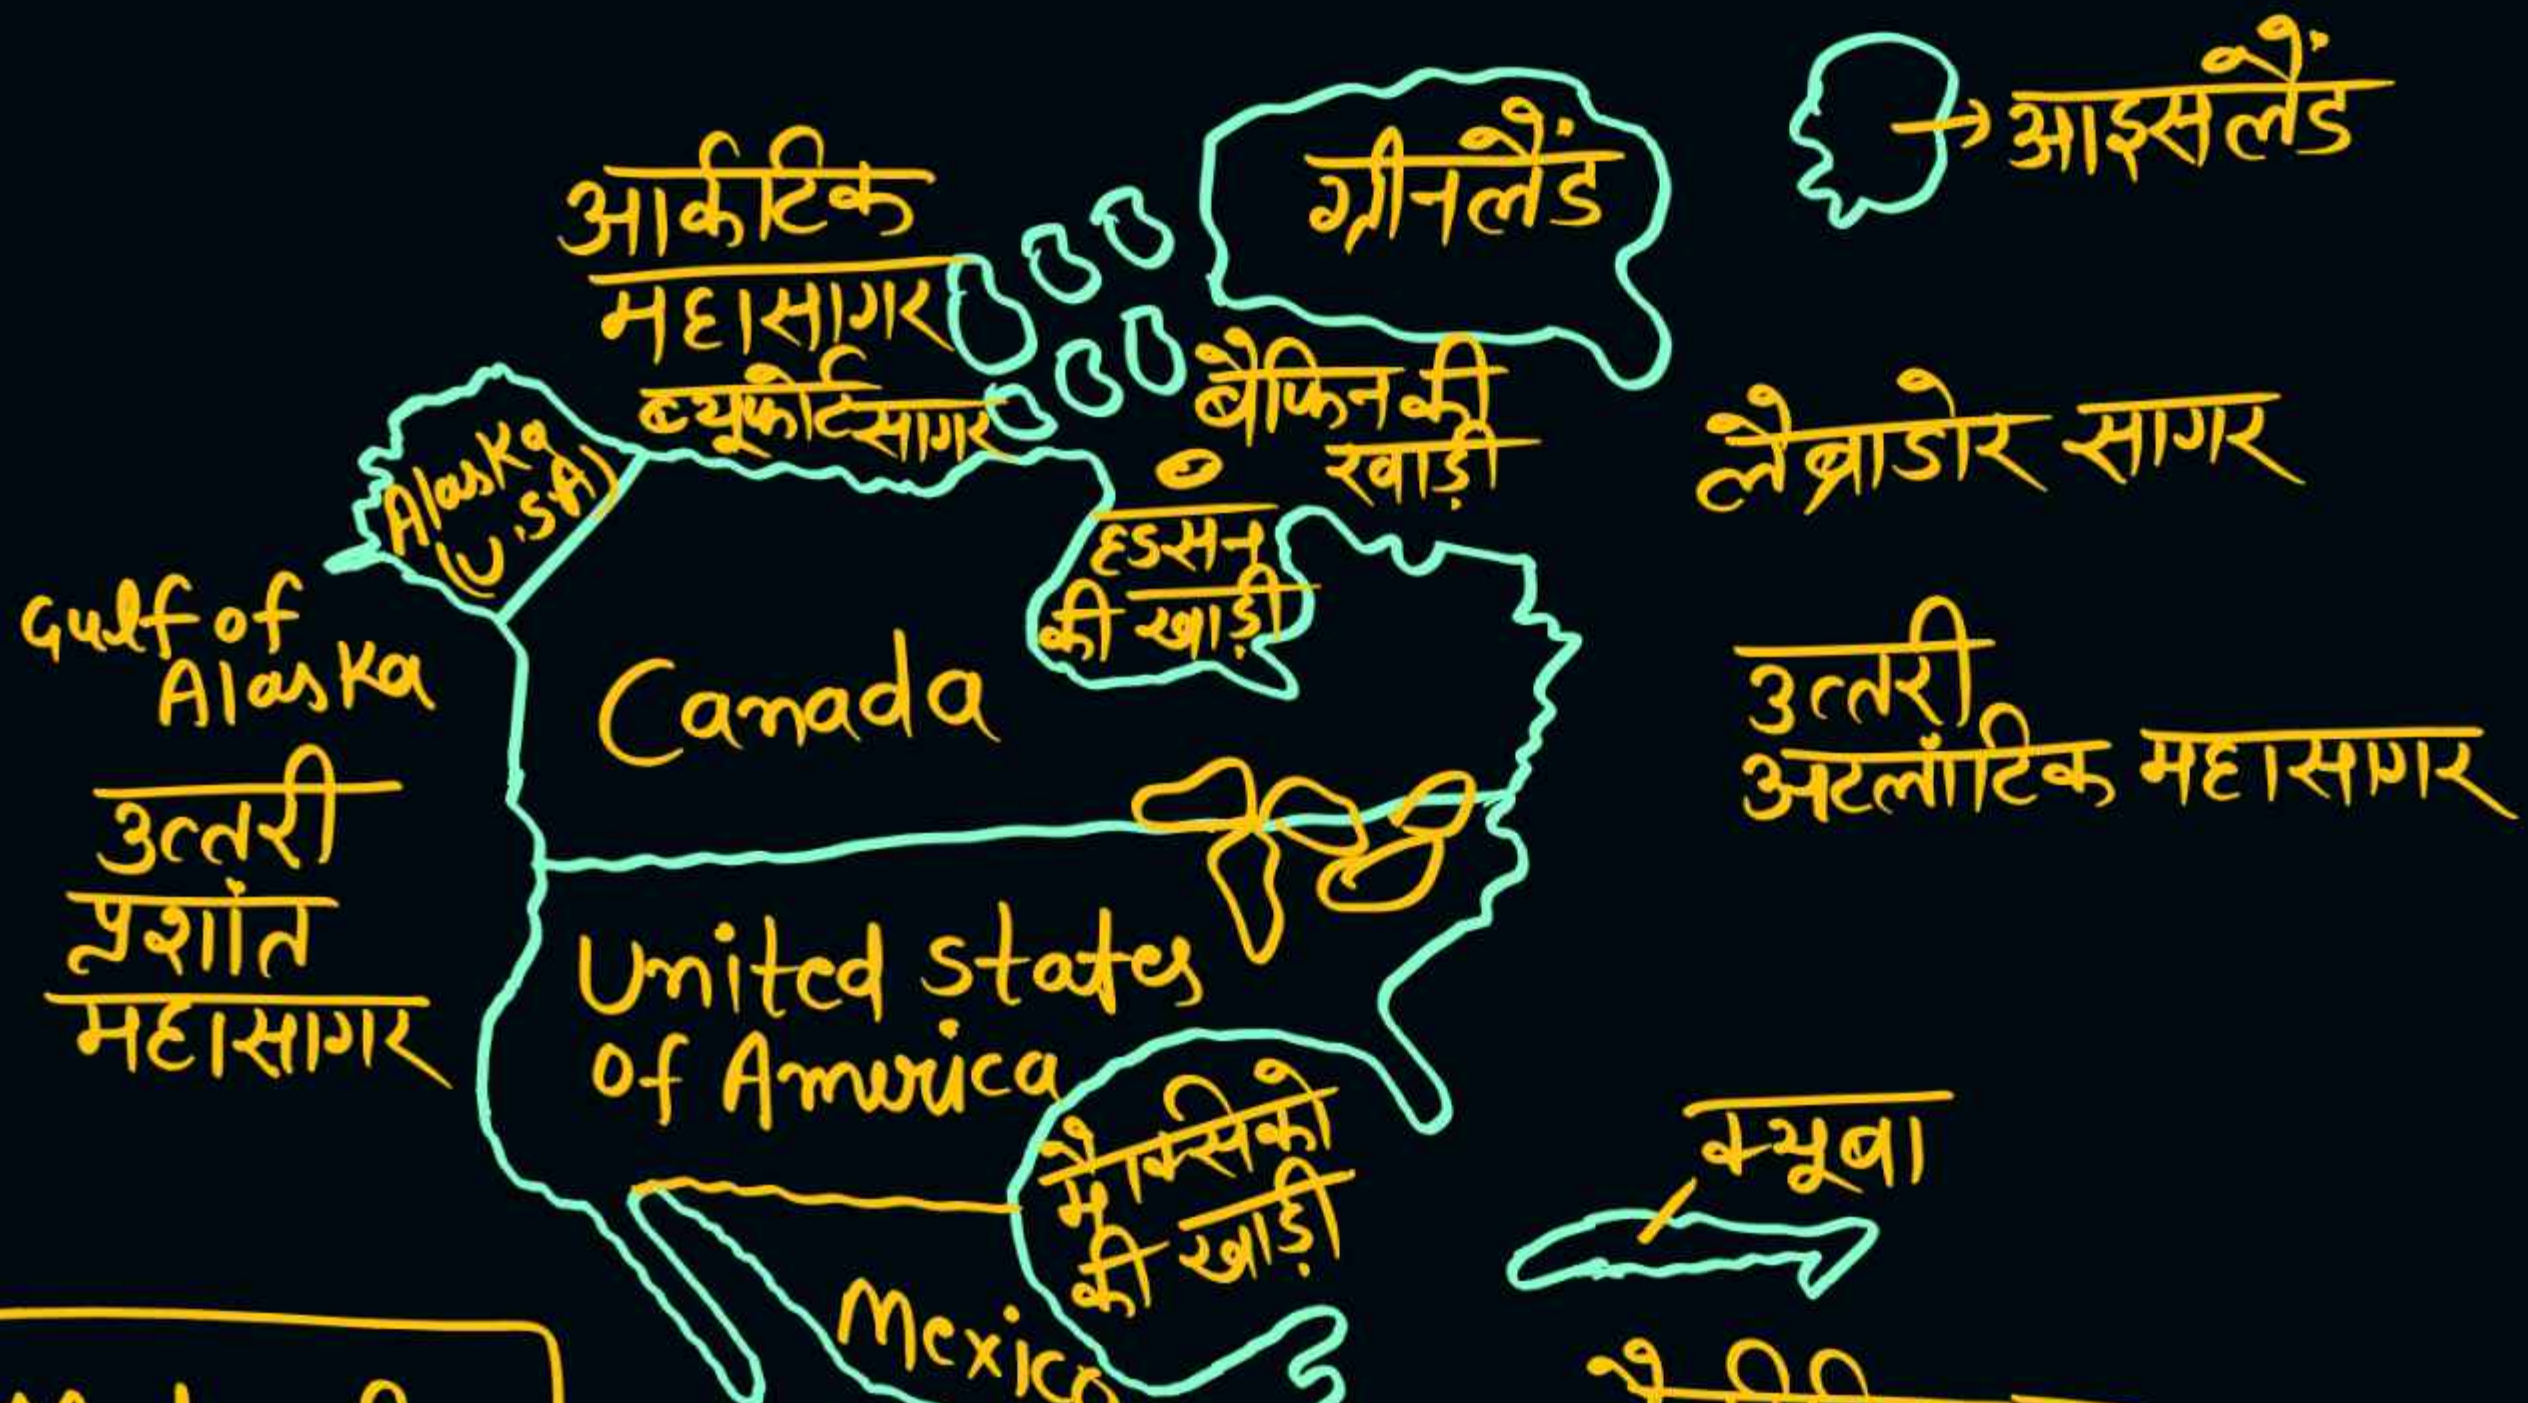 आइसलैंड
ग्रीनलैंड
आर्कटिक
महासागर
ब्यूफोर्टसागर
बैफिन की
खाड़ी
लैब्राडोर सागर
Alaska
(U.S.A)
हडसन
की खाड़ी
Gulf of
Alaska
Canada
उत्तरी
अटलांटिक महासागर
उत्तरी
प्रशांत
महासागर
United states
of America
मैक्सिको
की खाड़ी
क्यूबा
Mexico